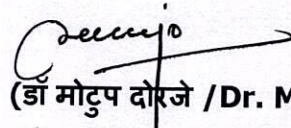 (डॉ मोटुप दोरजे /Dr. M